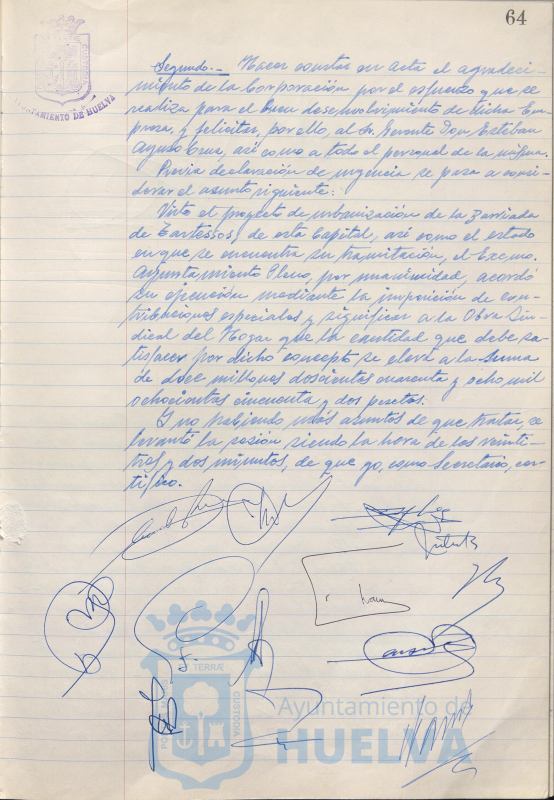 64
AYUNTAMIENTO DE HUELVA
Segundo.- Hacer constar en Acta el agradeci-
miento de la Corporación por el esfuerzo que se
realiza para el buen desenvolvimiento de dicha Em-
presa, y felicitar, por ello, al Sr. Gerente Don Esteban
Ayudo Cruz, así como a todo el personal de la misma.
Previa declaración de urgencia se pasa a consi-
derar el asunto siguiente:
Visto el proyecto de urbanización de la Barriada
de Tartessos, de esta Capital, así como el estado
en que se encuentra su tramitación, el Excmo.
Ayuntamiento Pleno, por unanimidad, acordó
su ejecución mediante la imposición de con-
tribuciones especiales y significar a la Obra Sin-
dical del Hogar que la cantidad que debe sa-
tisfacer por dicho concepto se eleva a la suma
de doce millones doscientas cuarenta y ocho mil
ochocientas cincuenta y dos pesetas.
Y no habiendo más asuntos de que tratar, se
levantó la sesión siendo la hora de las veinti-
tres y dos minutos, de que yo, como Secretario, cer-
tifico.
TERRÆ
CUSTODIA
Ayuntamiento de
HUELVA